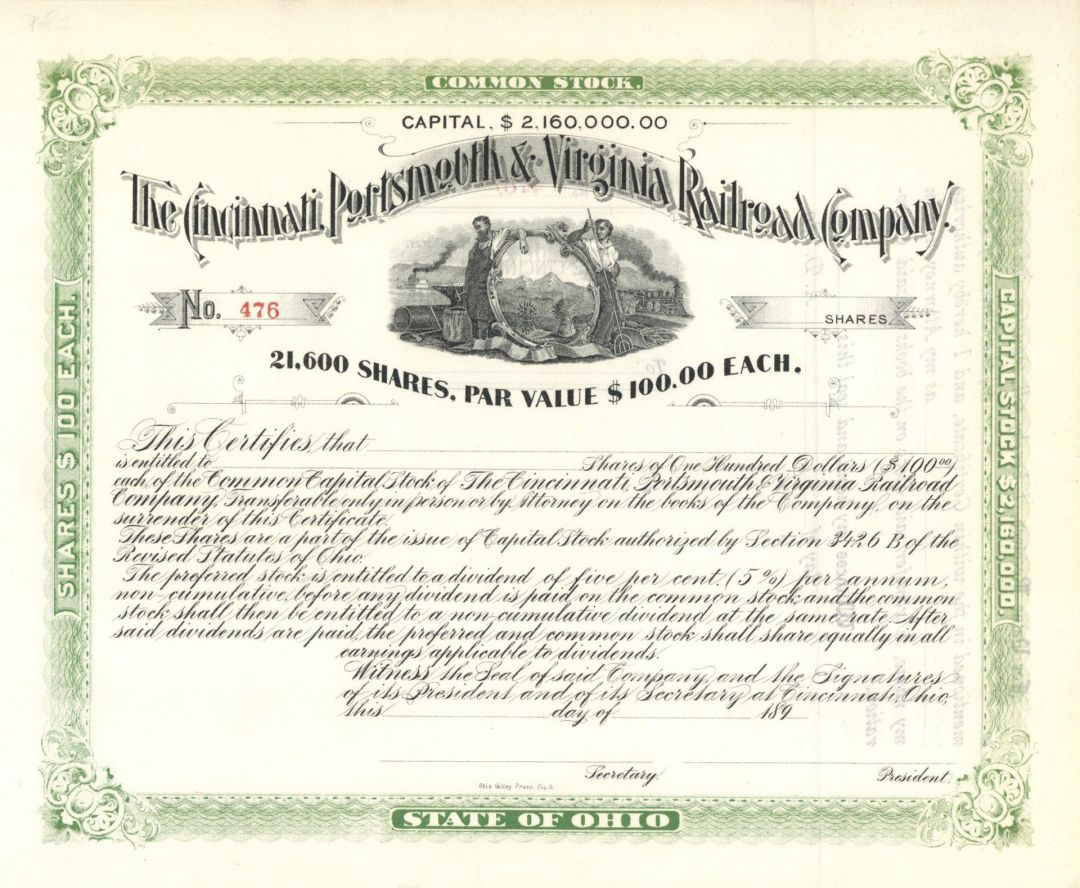 COMMON STOCK.
CAPITAL, $ 2,160,000.00
The Cincinnati, Portsmouth & Virginia Railroad Company.
No. 476
SHARES
21,600 SHARES, PAR VALUE $100.00 EACH.
SHARES $ 100 EACH.
CAPITAL STOCK $2,160,000
This Certifies, that
is entitled to Shares of One Hundred Dollars ($100⁰⁰)
each, of the Common Capital Stock of The Cincinnati, Portsmouth & Virginia Railroad
Company, Transferable only in person or by Attorney on the books of the Company, on the
surrender of this Certificate.
These Shares are a part of the issue of Capital Stock authorized by Section 3426 B of the
Revised Statutes of Ohio.
The preferred stock is entitled to a dividend of five per cent. (5%) per annum,
non-cumulative, before any dividend is paid on the common stock and the common
stock shall then be entitled to a non-cumulative dividend at the same rate. After
said dividends are paid, the preferred and common stock shall share equally in all
earnings applicable to dividends.
Witness the Seal of said Company, and the Signatures
of its President and of its Secretary at Cincinnati, Ohio,
this day of 189
Secretary. President.
Ohio Valley Press, Cin. O.
STATE OF OHIO